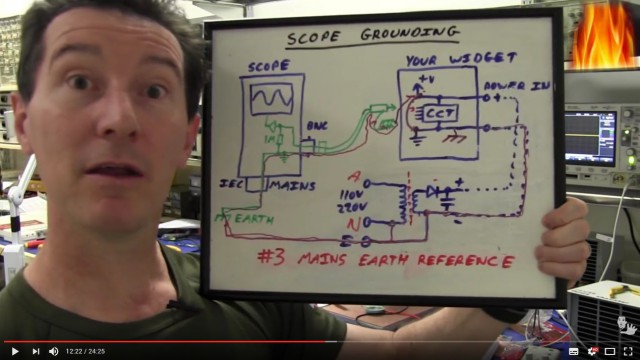 SCOPE GROUNDING
SCOPE
YOUR WIDGET
+V
POWER IN
+
CCT
BNC
1M
IEC MAINS
A
110V
220V
N
EARTH
+
-
#3 MAINS EARTH REFERENCE
12:22 / 24:25